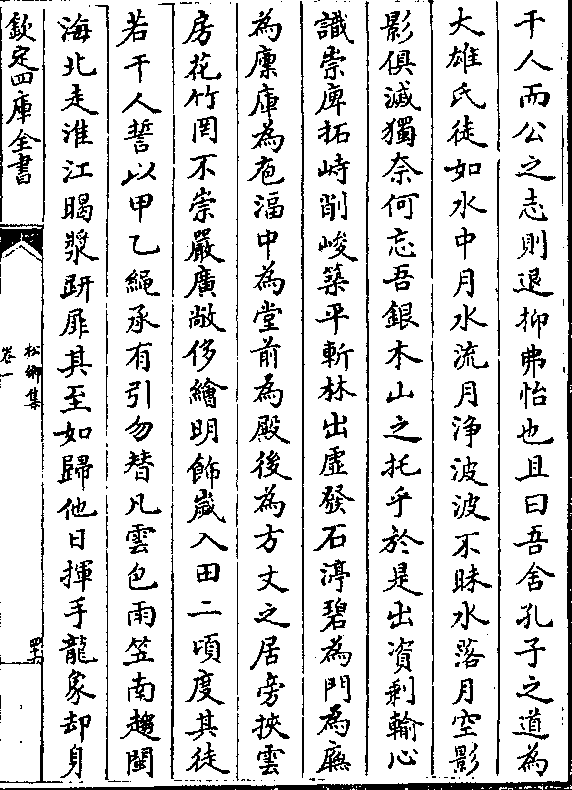 千人而公之志則退抑弗怡也且曰吾舍孔子之道為
大雄氏徒如水中月水流月淨波波不昧水落月空影
影俱滅獨奈何忘吾銀木山之托乎於是出資剩輸心
識崇庳拓峙削峻築平斬林出虛發石渟碧為門為廡
為廩庫為庖湢中為堂前為殿後為方丈之居旁挾雲
房花竹罔不崇嚴廣敞侈繪明飾嵗入田二頃度其徒
若干人誓以甲乙繩承有引勿替凡雲包雨笠南趨閩
海北走淮江暍漿趼屝其至如歸他日揮手龍象却身
欽定四庫全書
松鄉集
卷一